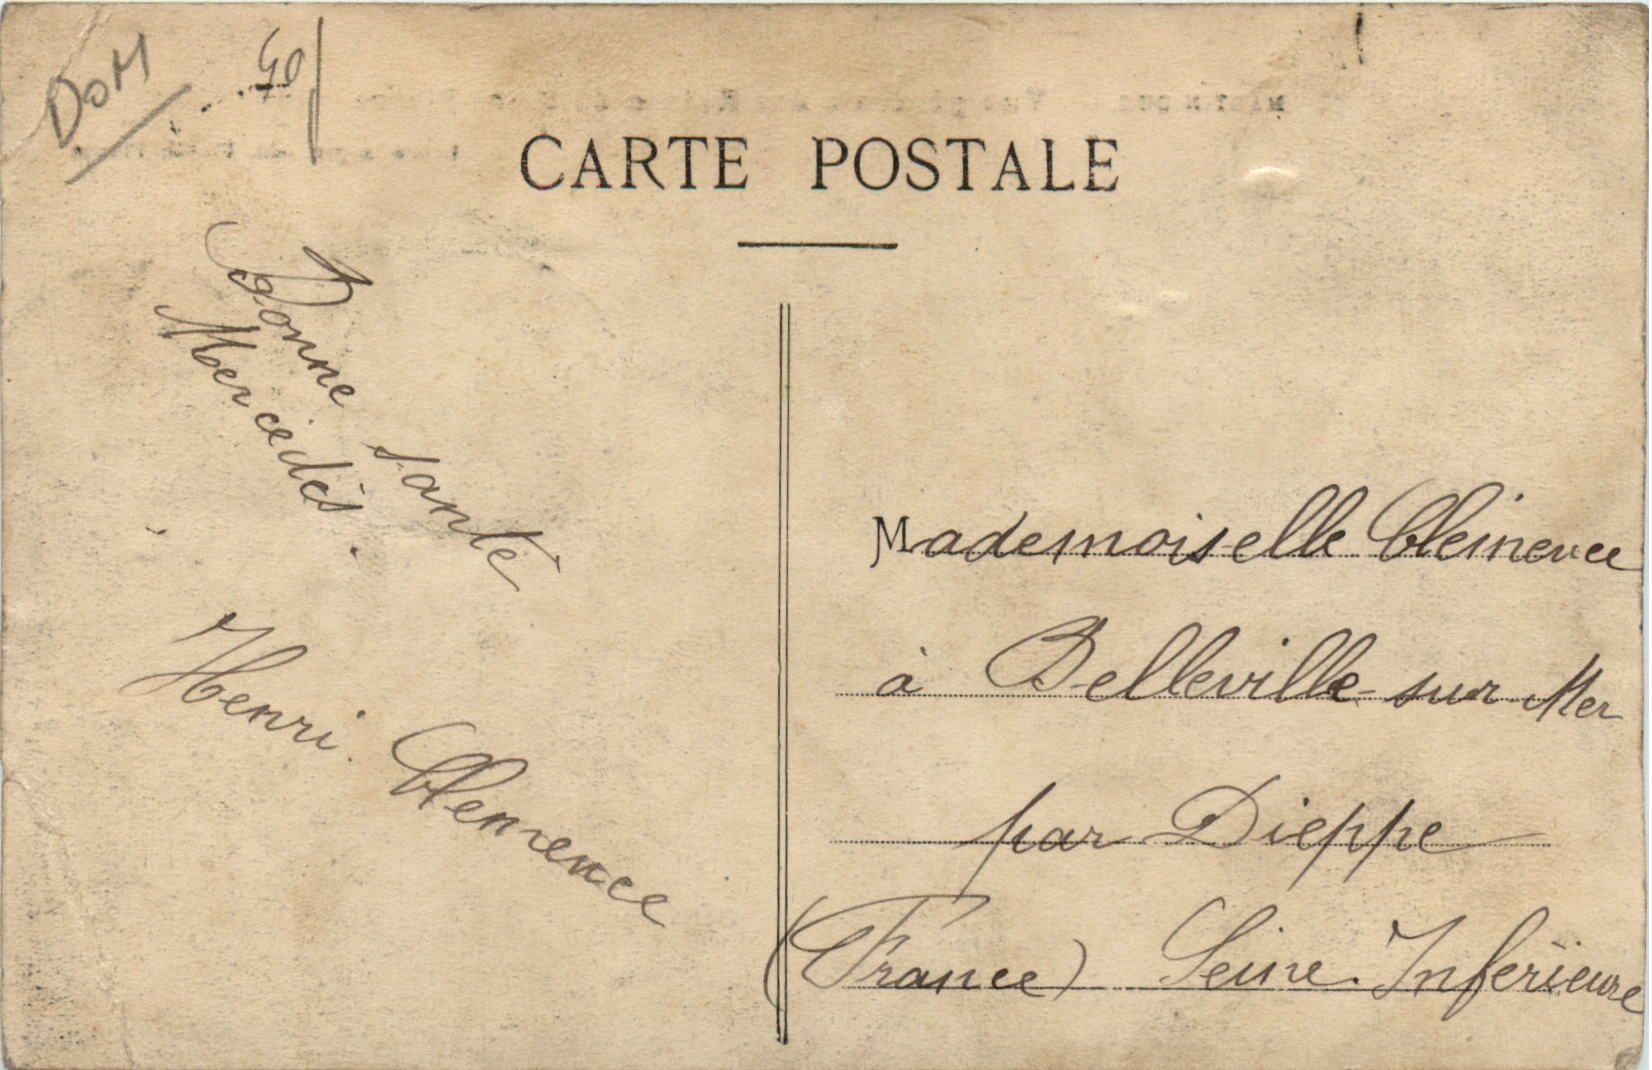 DOM
CARTE POSTALE
Bonne santé
Mercédès.
Henri Clemence
Mademoiselle Clemence
à Belleville-sur-Mer
par Dieppe
(France) Seine-Inférieure